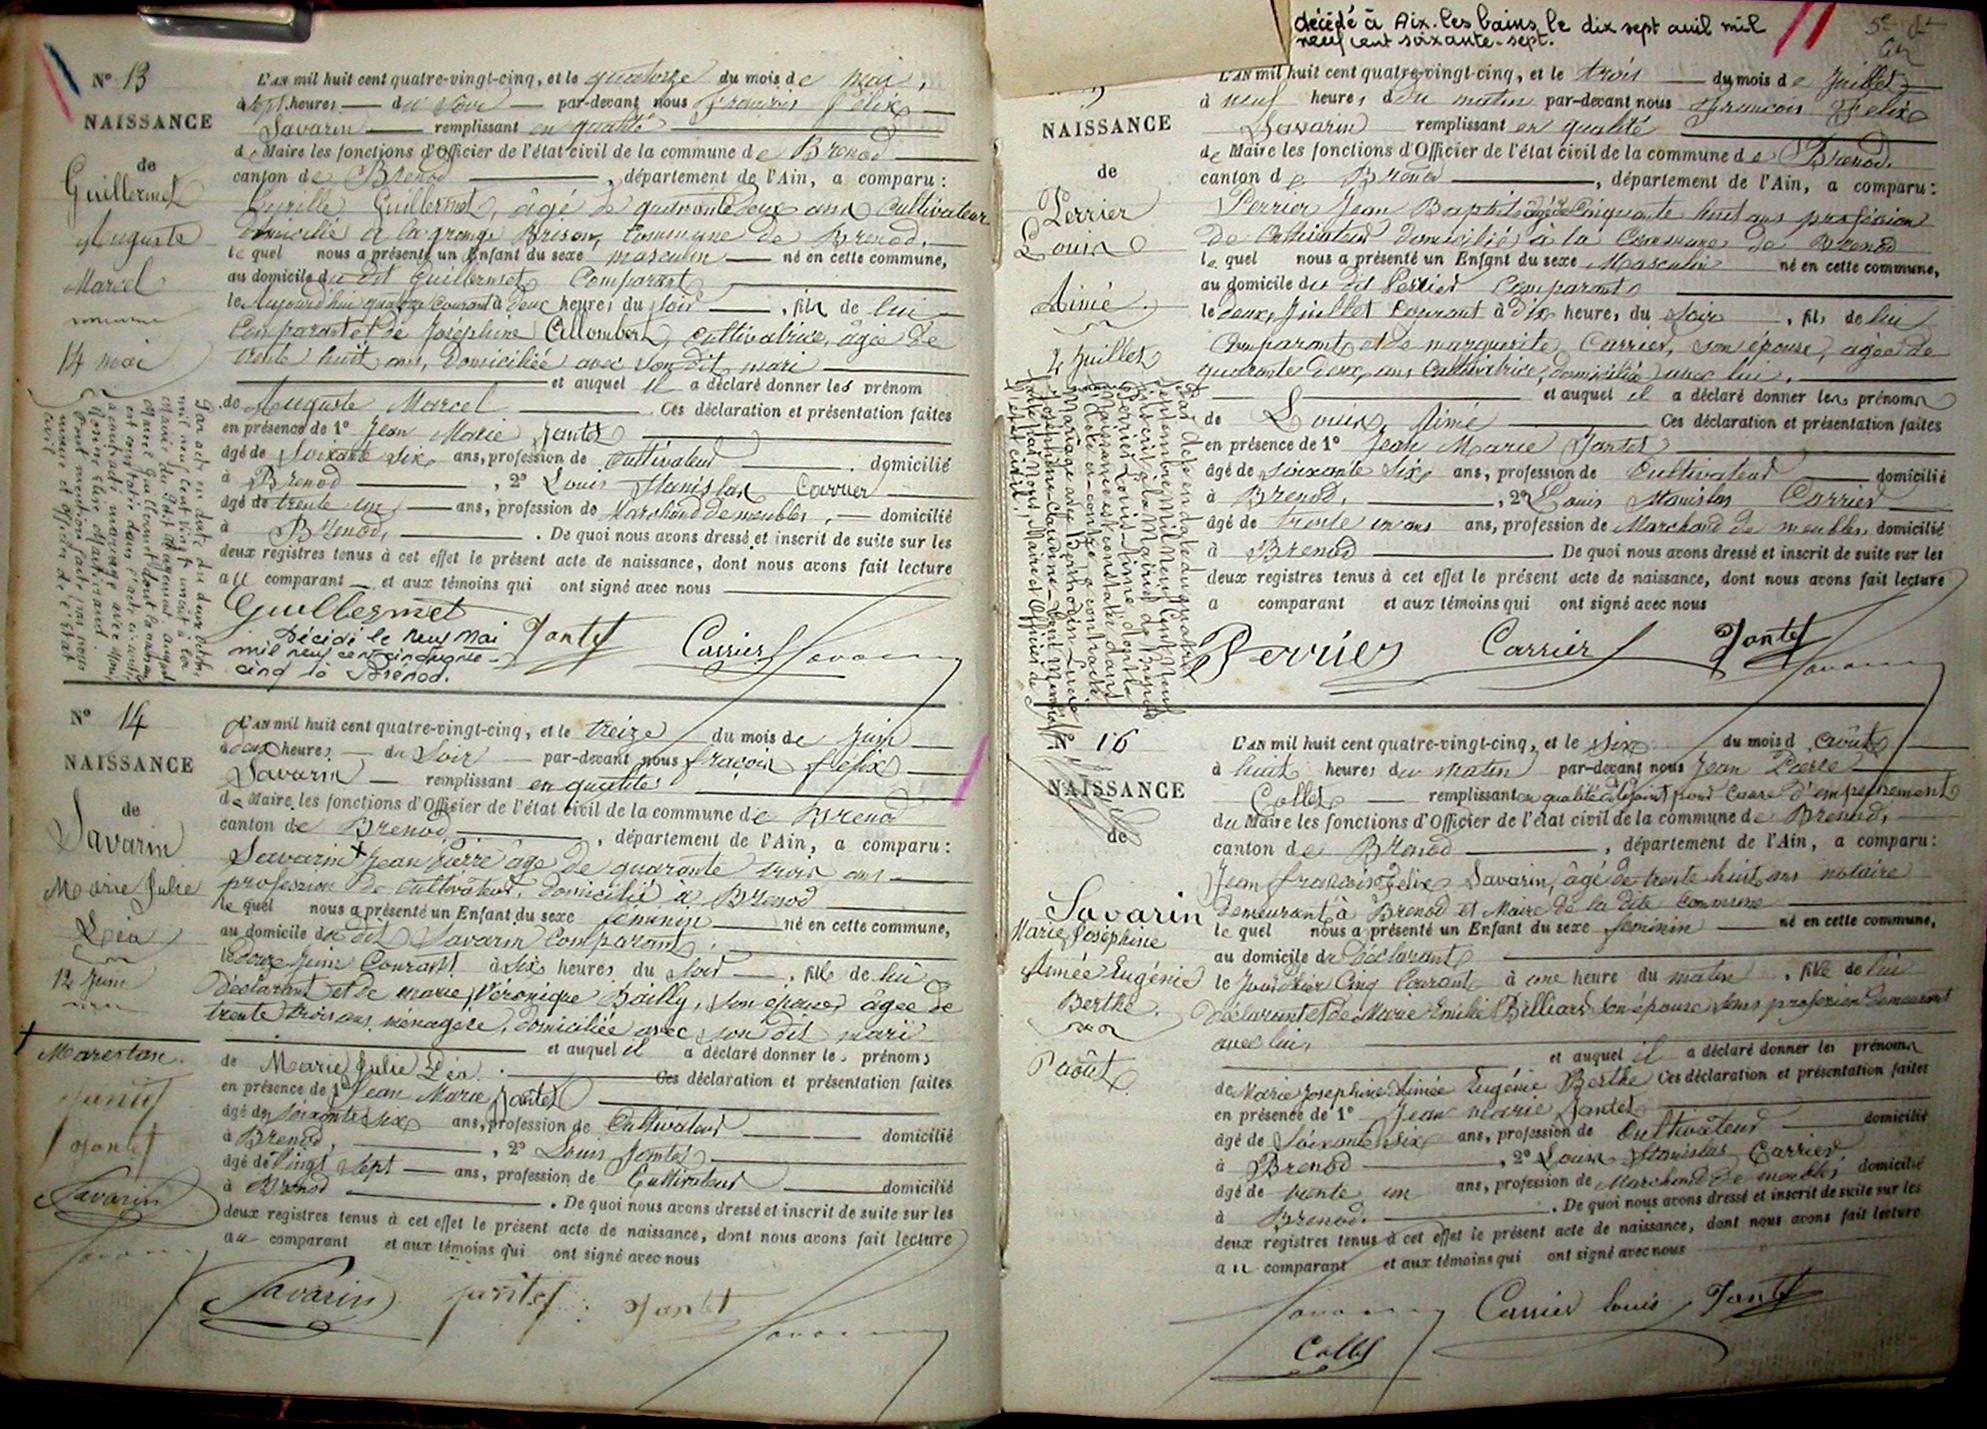 N° 13
NAISSANCE
de
Guillermet
Auguste
Marcel
14 mai
L'AN mil huit cent quatre-vingt-cinq, et le quatorze du mois de mai,
à sept heures du soir par-devant nous François Félix
Savarin remplissant en qualité
de Maire les fonctions d'Officier de l'état civil de la commune de Brenod
canton de Brenod, département de l'Ain, a comparu :
Cyrille Guillermet, âgé de quarante deux ans Cultivateur
domicilié à la grange Brison, Commune de Brenod.
lequel nous a présenté un Enfant du sexe masculin né en cette commune,
au domicile du dit Guillermet Comparant
le Aujourd'hui quatorze Courant à deux heures du soir, fils de lui
Comparant et de Joséphine Allombert, cultivatrice, âgée de
trente huit ans, domiciliée avec son dit mari
et auquel il a déclaré donner les prénom
de Auguste Marcel Ces déclaration et présentation faites
en présence de 1° Jean Marie Jantet
âgé de Soixante six ans, profession de Cultivateur domicilié
à Brenod, 2° Louis Stanislas Carrier
âgé de trente un ans, profession de Marchand de meubles, domicilié
à Brenod. De quoi nous avons dressé et inscrit de suite sur les
deux registres tenus à cet effet le présent acte de naissance, dont nous avons fait lecture
au comparant et aux témoins qui ont signé avec nous
Guillermet Jantet Carrier Savarin
Décédé le neuf Mai
mil neuf cent cinquante-
cinq à Brénod.
N° 14
NAISSANCE
de
Savarin
Marie Julie
Léa
12 Juin
Jantet
Jantet
Savarin
L'AN mil huit cent quatre-vingt-cinq, et le treize du mois de Juin
à deux heures du Soir par-devant nous fraçois félix
Savarin remplissant en qualités
de Maire les fonctions d'Officier de l'état civil de la commune de Brenod
canton de Brenod, département de l'Ain, a comparu :
Savarin Jean Pierre âgé de quarante trois ans
profession de Cultivateur, domicilié à Brenod
lequel nous a présenté un Enfant du sexe féminin né en cette commune,
au domicile du dit Savarin Comparant
le douze Juin Courant à six heures du soir, fille de lui
Déclarant et de marie Véronique Bailly, son épouse, âgée de
trente trois ans, ménagère, domiciliée avec son dit mari
et auquel il a déclaré donner les prénoms
de Marie Julie Léa. Ces déclaration et présentation faites
en présence de 1° Jean Marie Jantet
âgé de soixante six ans, profession de Cultivateur domicilié
à Brenod, 2° Louis Jantet
âgé de Vingt sept ans, profession de Cultivateur domicilié
à Brenod. De quoi nous avons dressé et inscrit de suite sur les
deux registres tenus à cet effet le présent acte de naissance, dont nous avons fait lecture
au comparant et aux témoins qui ont signé avec nous
Savarin Jantet Jantet Savarin
décédé à Aix-les bains le dix sept avril mil
neuf cent soixante-sept.
NAISSANCE
de
Perrier
Louis
Aimé
2 Juillet
L'AN mil huit cent quatre-vingt-cinq, et le trois du mois de Juillet
à neuf heures du matin par-devant nous François Félix
Savarin remplissant en qualité
de Maire les fonctions d'Officier de l'état civil de la commune de Brenod.
canton de Brenod, département de l'Ain, a comparu :
Perrier Jean Baptiste âgé de Cinquante huit ans profession
de Cultivateur domicilié à la Commune de Brenod
lequel nous a présenté un Enfant du sexe Masculin né en cette commune,
au domicile du dit Perrier Comparant
le deux Juillet Courant à dix heures du soir, fils de lui
Comparant et de marguerite Carrier, son épouse, agée de
quarante deux ans Cultivatrice, domiciliée avec lui.
et auquel il a déclaré donner les prénoms
de Louis Aimé Ces déclaration et présentation faites
en présence de 1° Jean Marie Jantet
âgé de soixante six ans, profession de Cultivateur domicilié
à Brenod, 2° Louis Stanislas Carrier
âgé de trente un ans ans, profession de Marchand de meubles, domicilié
à Brenod De quoi nous avons dressé et inscrit de suite sur les
deux registres tenus à cet effet le présent acte de naissance, dont nous avons fait lecture
a comparant et aux témoins qui ont signé avec nous
Perrier Carrier Jantet Savarin
16
NAISSANCE
de
Savarin
Marie Joséphine
Aimée Eugénie
Berthe.
août
L'AN mil huit cent quatre-vingt-cinq, et le Six du mois d'Août
à huit heures du matin par-devant nous Jean Pierre
Collet remplissant en qualité d'adjoint pour cause d'empêchement
du Maire les fonctions d'Officier de l'état civil de la commune de Brenod,
canton de Brenod, département de l'Ain, a comparu :
Jean françois Félix Savarin, âgé de trente huit ans notaire
demeurant à Brenod et Maire de la dite commune
lequel nous a présenté un Enfant du sexe féminin né en cette commune,
au domicile du Déclarant
le Jourd'hier Cinq Courant à une heure du matin, fille de lui
Déclarant et de Marie Emélie Billiard son épouse sans profession demeurant
avec lui,
et auquel il a déclaré donner les prénoms
de Marie Joséphine Aimée Eugénie Berthe Ces déclaration et présentation faites
en présence de 1° Jean Marie Jantet
âgé de Soixante six ans, profession de Cultivateur domicilié
à Brenod, 2° Louis Stanislas Carrier
âgé de trente un ans, profession de Marchand de meubles domicilié
à Brenod. De quoi nous avons dressé et inscrit de suite sur les
deux registres tenus à cet effet le présent acte de naissance, dont nous avons fait lecture
au comparant et aux témoins qui ont signé avec nous
Savarin Carrier Louis Jantet
Collet